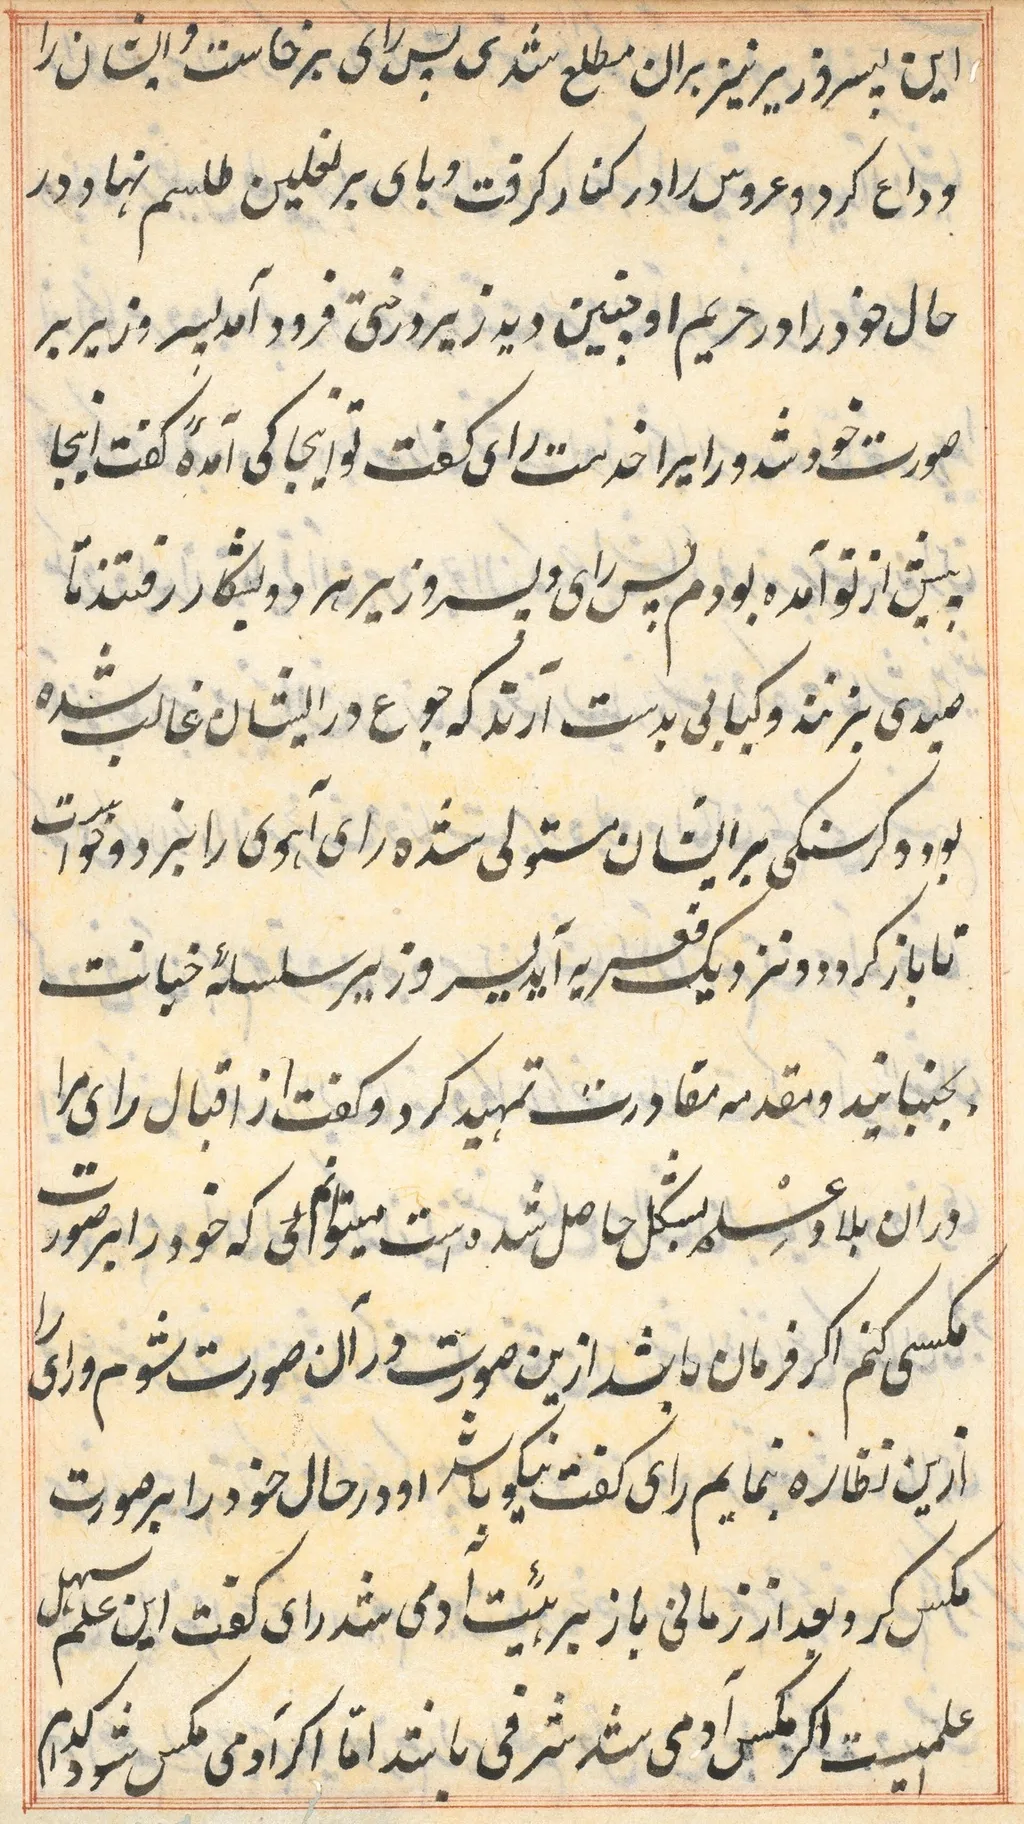 این پسر وزیر نیز بران مطلع شدی پس رای برخاست و ایشان را
وداع کرد و عروس را در کنار کرفت و پای بر نعلین طلسم نهاد و در
حال خود را در حریم او چنین دید زیر درختی فرود آمد پسر وزیر بر
صورت خود شد و رایرا خدمت رای کفت تو اینجا کی آمدهٔ کفت اینجا
پیش از تو آمده بودم پس رای و پسر وزیر هر دو بشکار رفتند تا
صیدی بزنند و کبابی بدست آرند که جوع در ایشان غالب شده
بود و کرسنکی بر ایشان مستولی شده رای آهوی را بزد و خواست
تا باز کردد و نزدیک قصریه آید پسر وزیر سلسلهٔ خیانت
بجنبانید و مقدمه مقادرت تمهید کرد و کفت از اقبال رای مرا
دران بلاد بشکل حاصل شده است میتوانم که خود را بر صورت
مکسی کنم اکر فرمان باشد ازین صورت در آن صورت شوم و رای را
ازین نظاره بنمایم رای کفت نیکو باشد او در حال خود را بر صورت
مکس کرد بعد از زمانی باز بر هیئت آدمی شد رای کفت این علم سهل
علمیست اکر مکس آدمی شد شرفی باشد امّا اکر آدمی مکس شود کدام